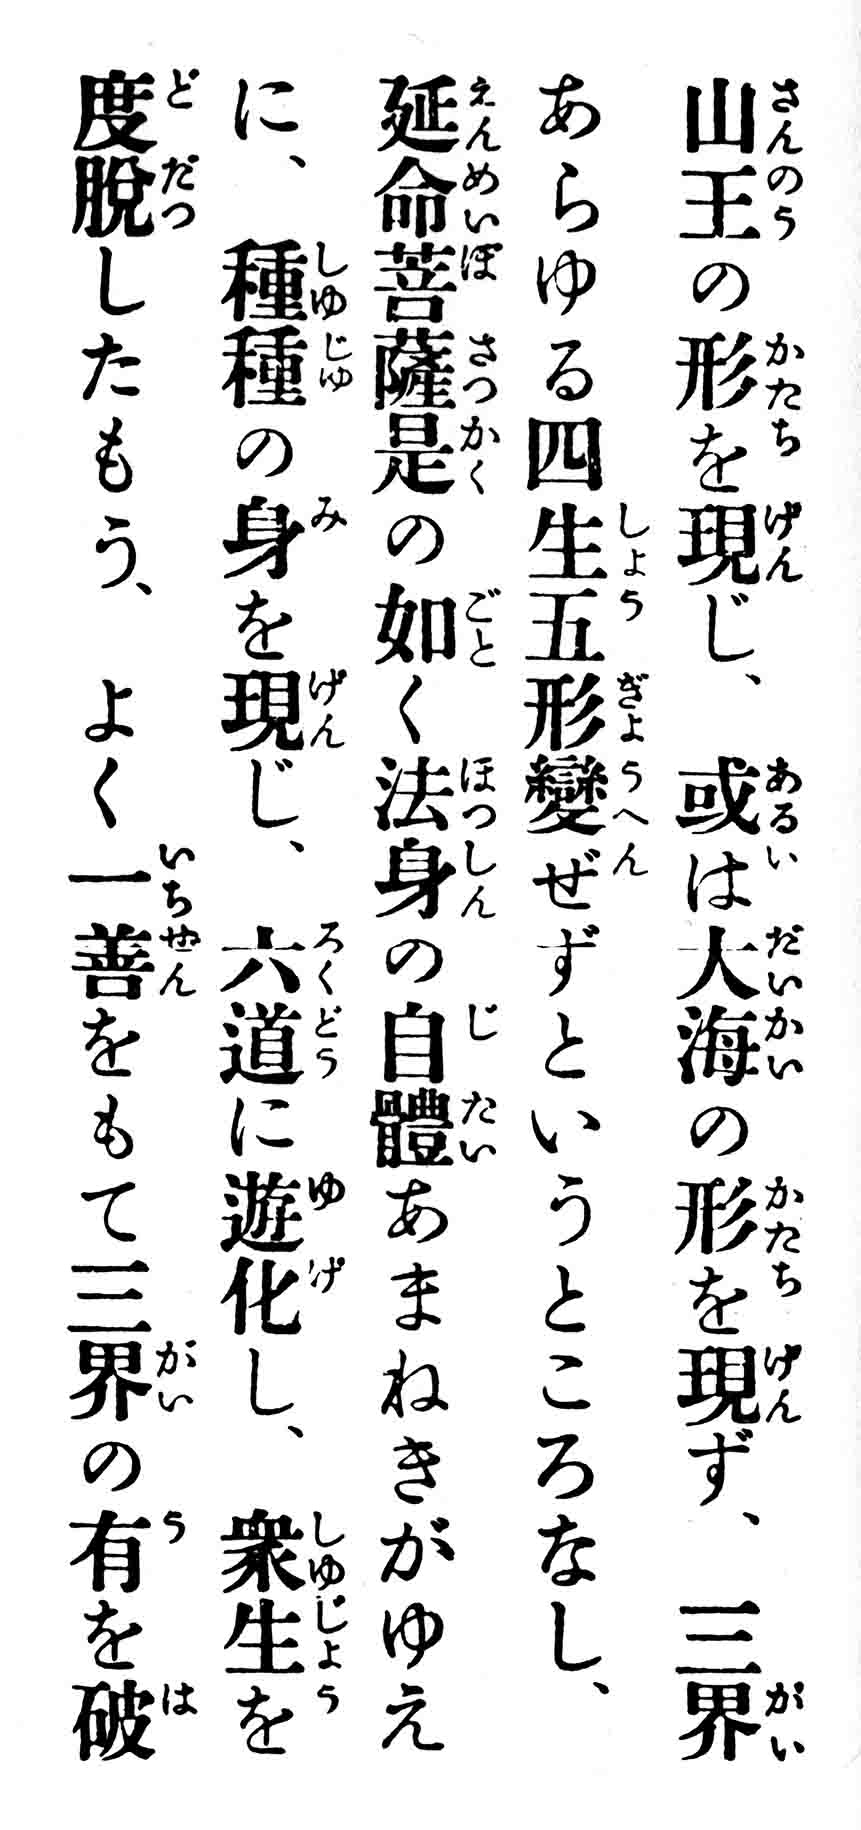 山王の形を現じ、或は大海の形を現ず、三界
あらゆる四生五形變ぜずというところなし、
延命菩薩是の如く法身の自體あまねきがゆえ
に、種種の身を現じ、六道に遊化し、衆生を
度脱したもう、よく一善をもて三界の有を破